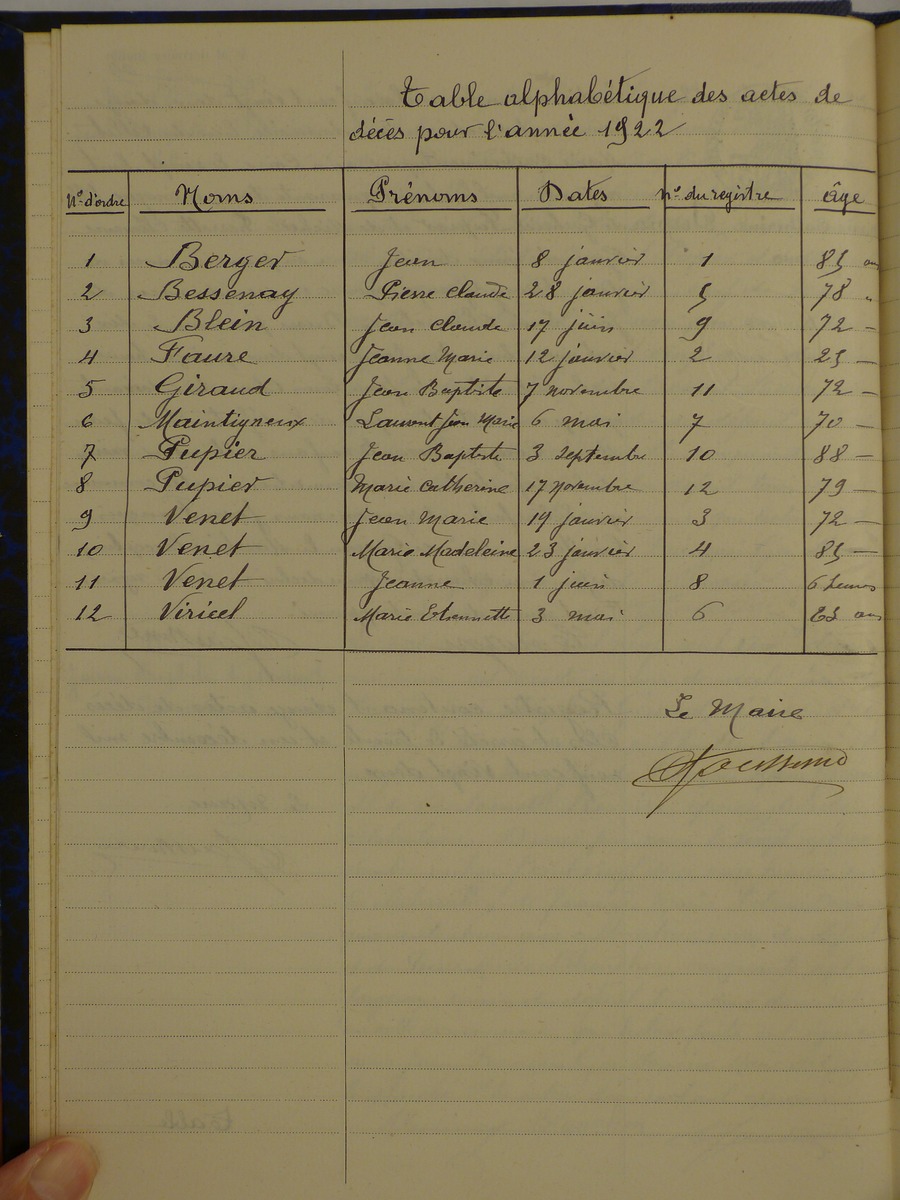 Table alphabétique des actes de
décès pour l'année 1922
N° d'ordre Noms Prénoms Dates n° du registre âge
1 Berger Jean 8 janvier 1 85 ans
2 Bessenay Pierre Claude 28 janvier 5 78 "
3 Blein Jean Claude 17 juin 9 72 —
4 Faure Jeanne Marie 12 janvier 2 25 —
5 Giraud Jean Baptiste 7 novembre 11 72 —
6 Maintigneux Laurent Jean Marie 6 mai 7 70 —
7 Pupier Jean Baptiste 3 septembre 10 88 —
8 Pupier Marie Catherine 17 novembre 12 79 —
9 Venet Jean Marie 19 janvier 3 72 —
10 Venet Marie Madeleine 23 janvier 4 85 —
11 Venet Jeanne 1 juin 8 6 heures
12 Viricel Marie Etiennette 3 mai 6 ans
Le Maire